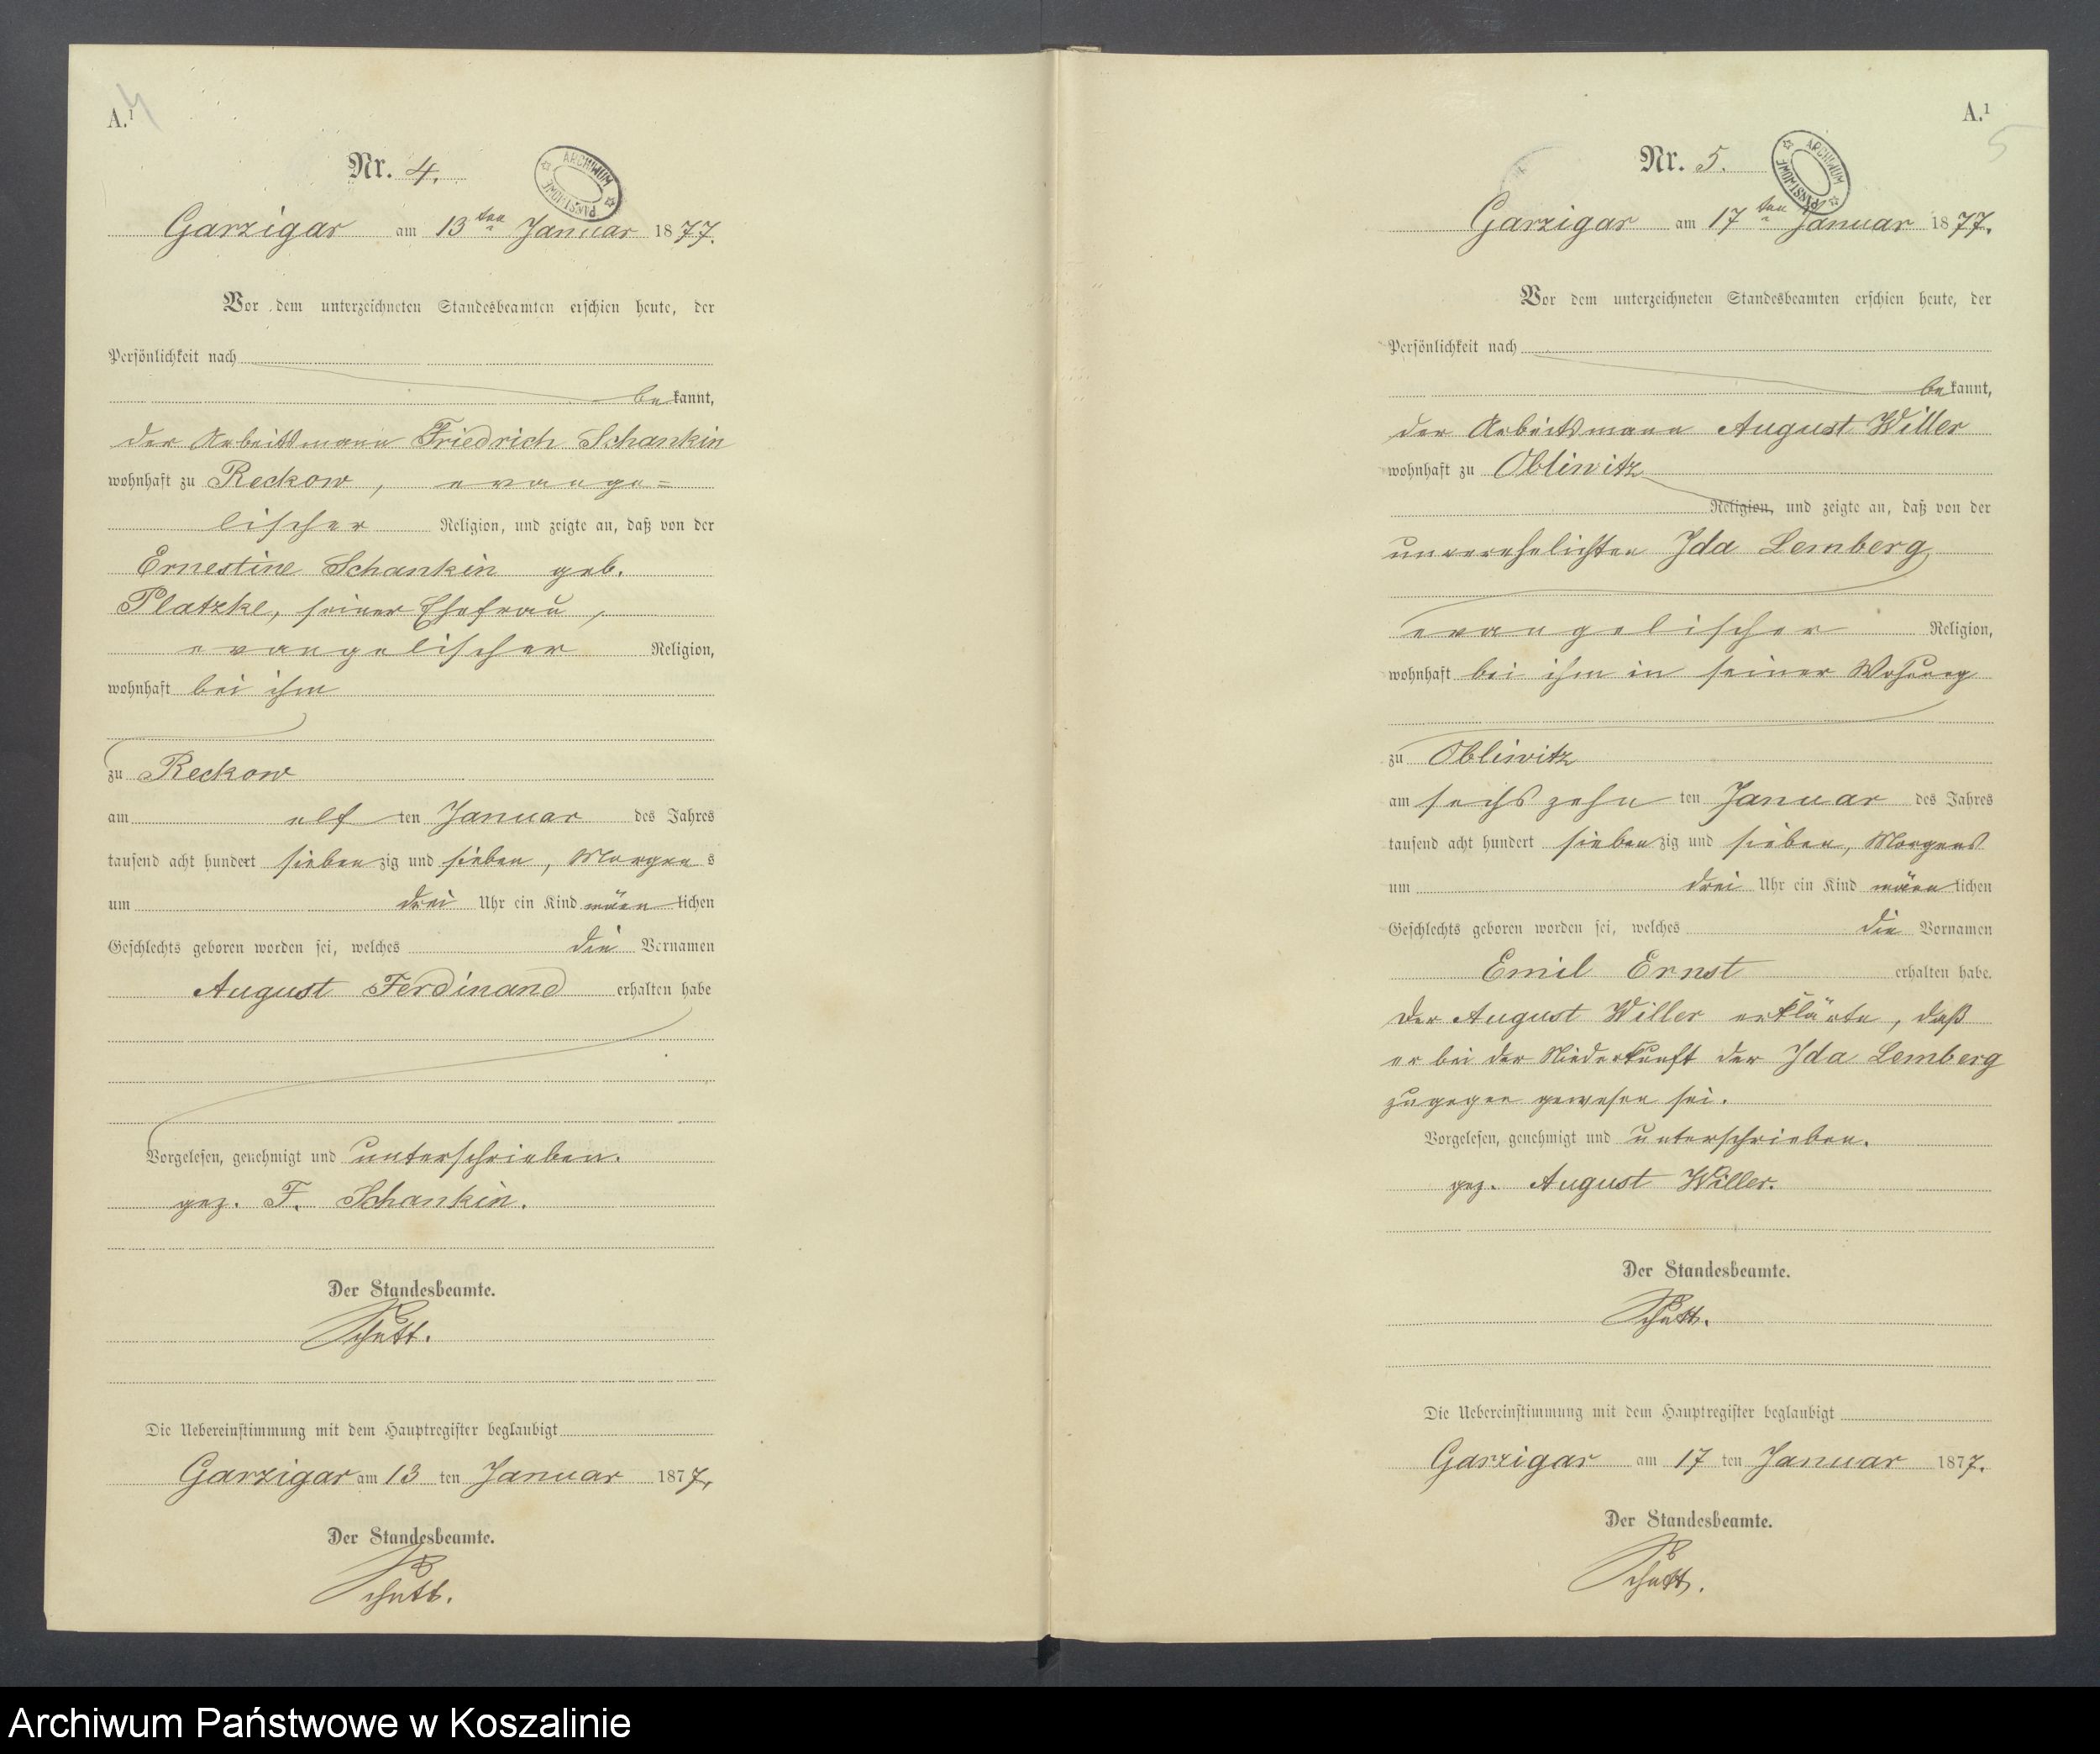 A.¹ 4
Nr. 4.
ARCHIWUM PAŃSTWOWE
Garzigar am 13ten Januar 1877.
Vor dem unterzeichneten Standesbeamten erschien heute, der
Persönlichkeit nach
bekannt,
der Arbeitsmann Friedrich Schankin
wohnhaft zu Reckow, evange=
lischer Religion, und zeigte an, daß von der
Ernestine Schankin geb.
Platzke, seiner Ehefrau,
evangelischer Religion,
wohnhaft bei ihm
zu Reckow
am elf ten Januar des Jahres
tausend acht hundert siebenzig und sieben, Morgens
um drei Uhr ein Kind männlichen
Geschlechts geboren worden sei, welches die Vornamen
August Ferdinand erhalten habe
Vorgelesen, genehmigt und unterschrieben.
gez. F. Schankin.
Der Standesbeamte.
Schütt.
Die Uebereinstimmung mit dem Hauptregister beglaubigt
Garzigar am 13 ten Januar 1877.
Der Standesbeamte.
Schütt.
A.¹
5
Nr. 5.
ARCHIWUM PAŃSTWOWE
Garzigar am 17ten Januar 1877.
Vor dem unterzeichneten Standesbeamten erschien heute, der
Persönlichkeit nach
bekannt,
der Arbeitsmann August Willer
wohnhaft zu Obliwitz
Religion, und zeigte an, daß von der
unverehelichten Ida Lemberg
evangelischer Religion,
wohnhaft bei ihm in seiner Wohung
zu Obliwitz
am sechszehn ten Januar des Jahres
tausend acht hundert siebenzig und sieben, Morgens
um drei Uhr ein Kind männlichen
Geschlechts geboren worden sei, welches die Vornamen
Emil Ernst erhalten habe.
Der August Willer erklärte, daß
er bei der Niederkunft der Ida Lemberg
zugegen gewesen sei.
Vorgelesen, genehmigt und unterschrieben.
gez. August Willer.
Der Standesbeamte.
Schütt.
Die Uebereinstimmung mit dem Hauptregister beglaubigt
Garzigar am 17 ten Januar 1877.
Der Standesbeamte.
Schütt.
Archiwum Państwowe w Koszalinie